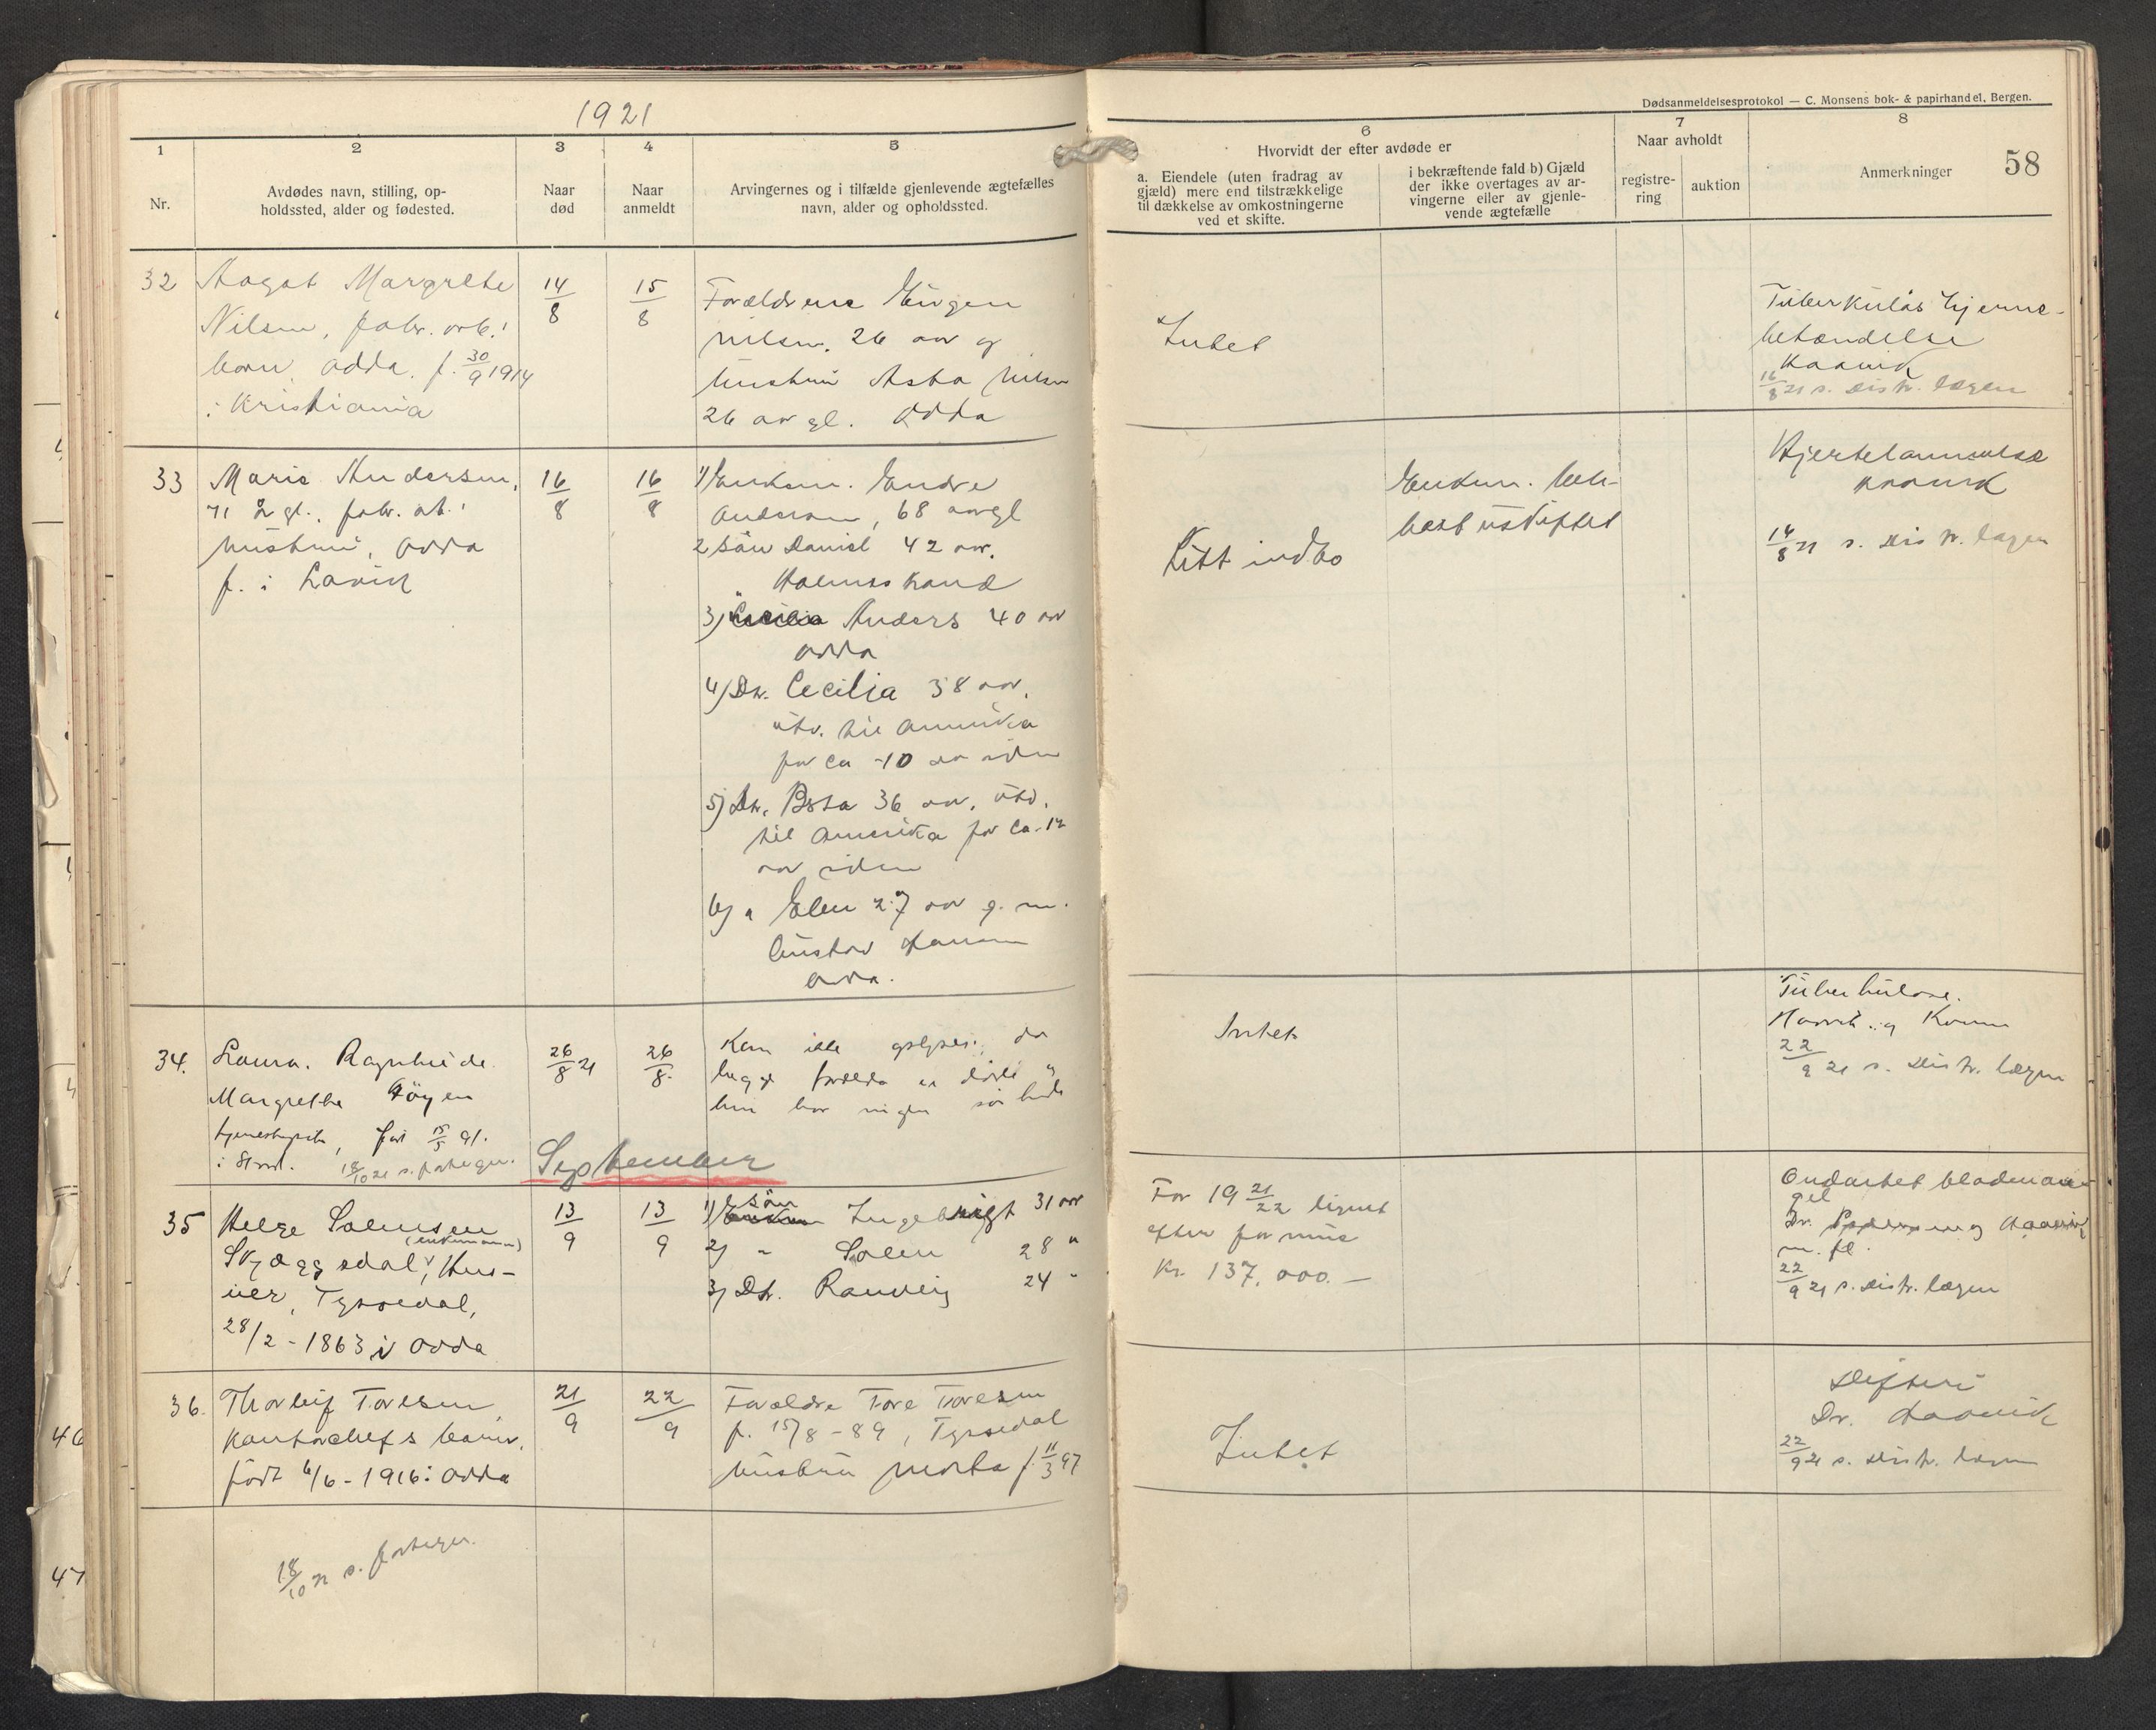 1921
Dødsanmeldelsesprotokol — C. Monsens bok- & papirhandel, Bergen.
58
1
Nr.
2
Avdødes navn, stilling, op-
holdssted, alder og fødested.
3
Naar
død
4
Naar
anmeldt
5
Arvingernes og i tilfælde gjenlevende ægtefælles
navn, alder og opholdssted.
6
Hvorvidt der efter avdøde er
a. Eiendele (uten fradrag av
gjæld) mere end tilstrækkelige
til dækkelse av omkostningerne
ved et skifte.
i bekræftende fald b) Gjæld
der ikke overtages av ar-
vingerne eller av gjenle-
vende ægtefælle
7
Naar avholdt
registre-
ring
auktion
8
Anmerkninger
32
Aagot Margrethe
Nilsen, fabr. arb.:
barn, Odda. f. 30/9 1914
i Kristiania
14/8
15/8
Forældrene Eugen
Nilsen, 26 aar og
hustru Asta Nilsen
26 aar gl. Odda
Intet
Tuberkuløs hjerne-
betændelse
Haavik
16/8 21 s. distr. lægen
33
Marie Andersen,
71 år gl., fabr. arb.:
hustru, Odda
f. i Lavik
16/8
16/8
1) Enkem. Endre
Andersen, 68 aar gl
2 Søn Daniel 42 aar.
Holmestrand
3) " Anders 40 aar
Odda
4) Dtr. Cecilia 38 aar,
utv. til Amerika
for ca 10 aar siden
5) Dtr. 36 aar, utv.
til Amerika for ca. 12
aar siden
6) " Elen 27 aar g. m.
Gustav Hansen
Odda.
Litt indbo
Enkem. beh-
uskiftet
Hjertelammelse
Haavik
21 s. distr. lægen
34.
Laura Ragnhilde
Margrethe Føyen
tjenestepike, født 15/5 91.
i Stord. 18/10 21 s. forteg.
26/8 21
26/8.
Kan ikke oplyses, da
begge forældre er døde og
hun har ingen søskende
Intet
Tuberkulose.
Haavik og
22/9 21 s. distr. lægen
September
35
Helge Solemsen
(enkemann)
Skjæggsdal,
Tyssedal,
28/2 - 1863 i Odda
13/9
13/9
1) Søn Ingebrigt 31 aar
2) " Solem 28 "
3) Dtr. Randveig 24 "
For 19 21/22 lignet
efter formue
Kr. 137,000.—
Ondartet blodman-
gel
Dr. Pedersen og Haavik
m. fl.
22/9 21 s. distr. lægen
36.
Thorleif Toresen,
kontorchefs barn,
født 6/6 - 1916 i Odda
21/9
22/9
Forældre Tore Toresen
f. 15/8 - 89, Tyssedal
hustru Marta f. 11/3 97
Intet
Difteri
Dr. Haavik
22/9 21 s. distr. lægen
18/10 21 s. forteg.
46
47